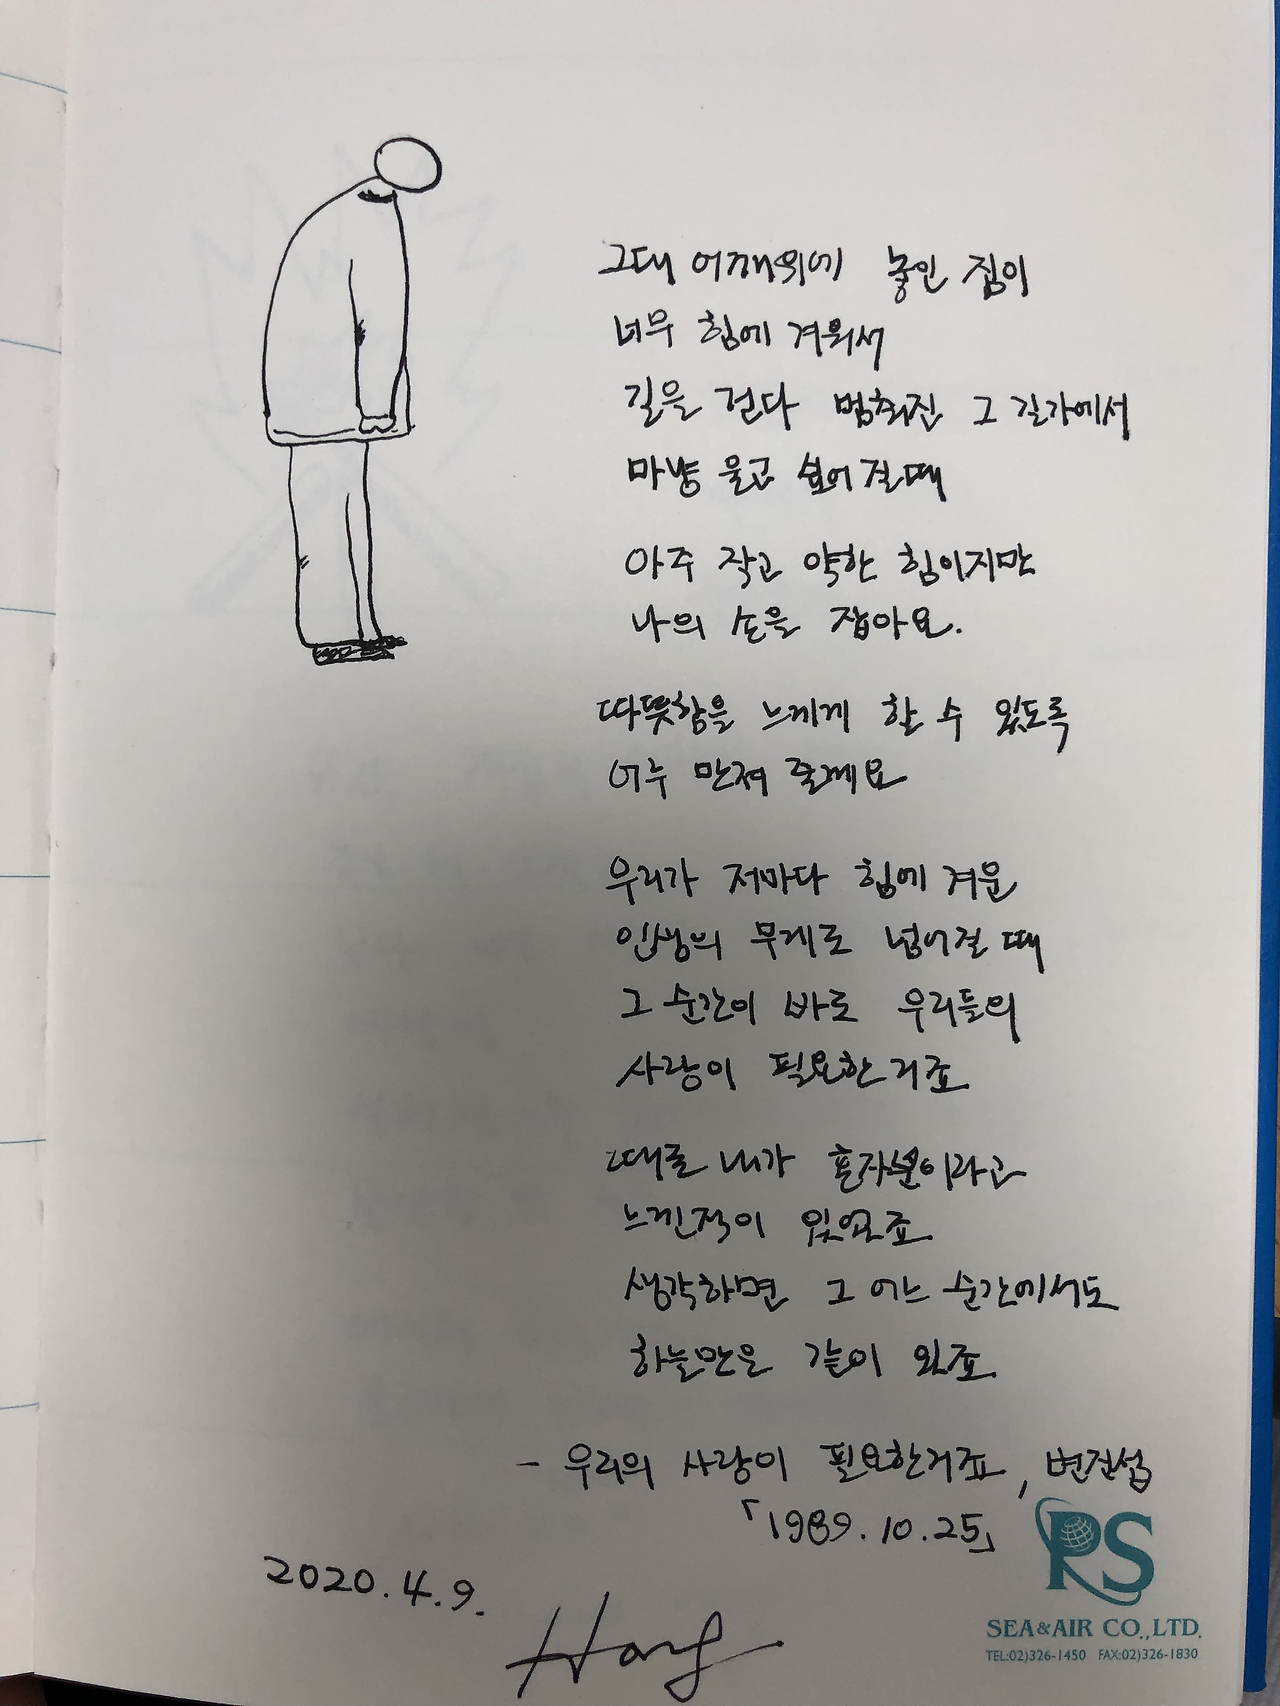 그대 어깨위에 놓인 짐이
너무 힘에 겨워서
길을 걷다 멈춰진 그 길가에서
마냥 울고 싶어 질때
아주 작고 약한 힘이지만
나의 손을 잡아요.
따뜻함을 느끼게 할 수 있도록
어루 만져 줄께요
우리가 저마다 힘에 겨운
인생의 무게로 넘어질 때
그 순간이 바로 우리들의
사랑이 필요한거죠
때로 내가 혼자뿐이라고
느낀적이 있었죠
생각하면 그 어느 순간에서도
하늘만은 같이 있죠
- 우리의 사랑이 필요한거죠, 변진섭
「1989.10.25」
2020.4.9.
Hong
RS
SEA&AIR CO.,LTD.
TEL:02)326-1450 FAX:02)326-1830